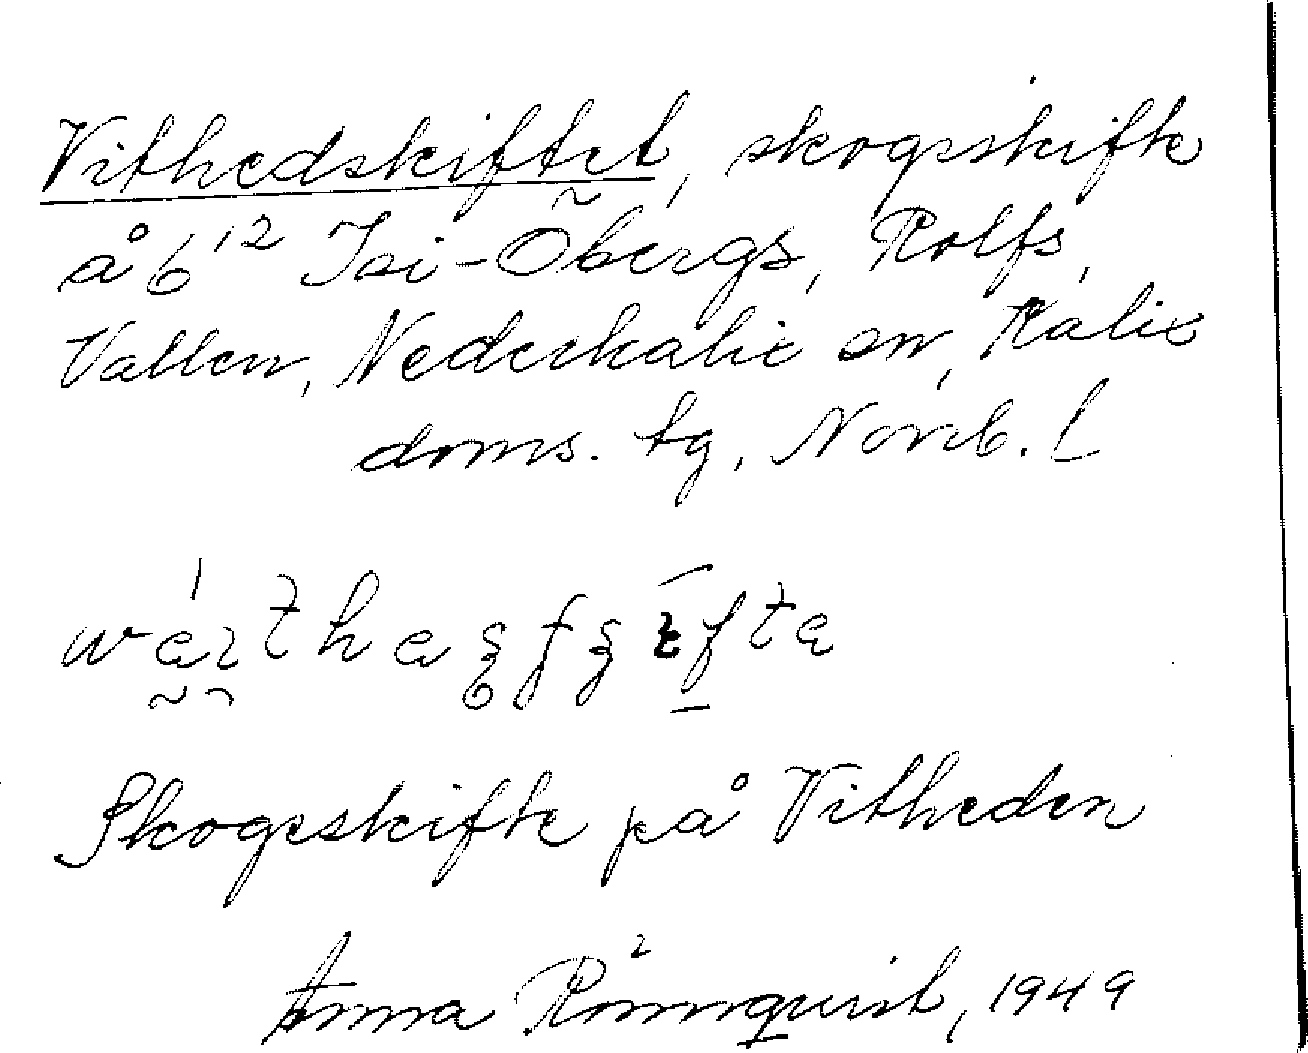 Vithedskiftet, skogsskifte
å 6¹² Isi-Öbergs, Rolfs,
Vallen, Nederkalix sn, Kalix
doms. tg, Norrb. l
Skogsskifte på Vitheden
Anna Rönnquist, 1949